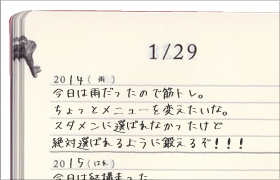 1/29
2014(雨)
今日は雨だったので筋トレ。
ちょっとメニューを変えたいな。
スタメンに選ばれなかったけど
絶対選ばれるように鍛えるぞ!!!
2015(はれ)
今日は結構まった